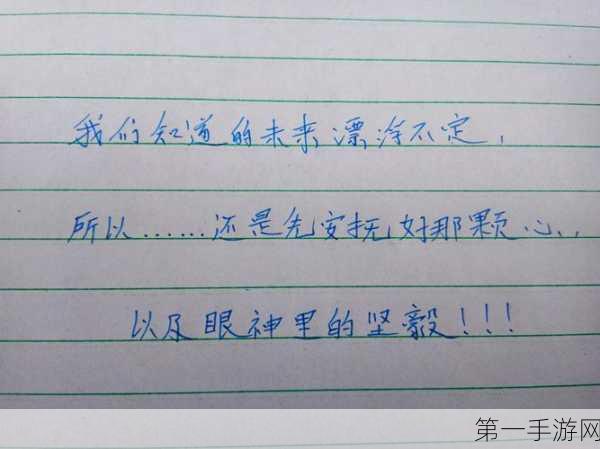 我们知道的未来漂浮不定,
所以......还是先安抚好那颗心..
以及眼神里的坚毅!!!
第一手游网